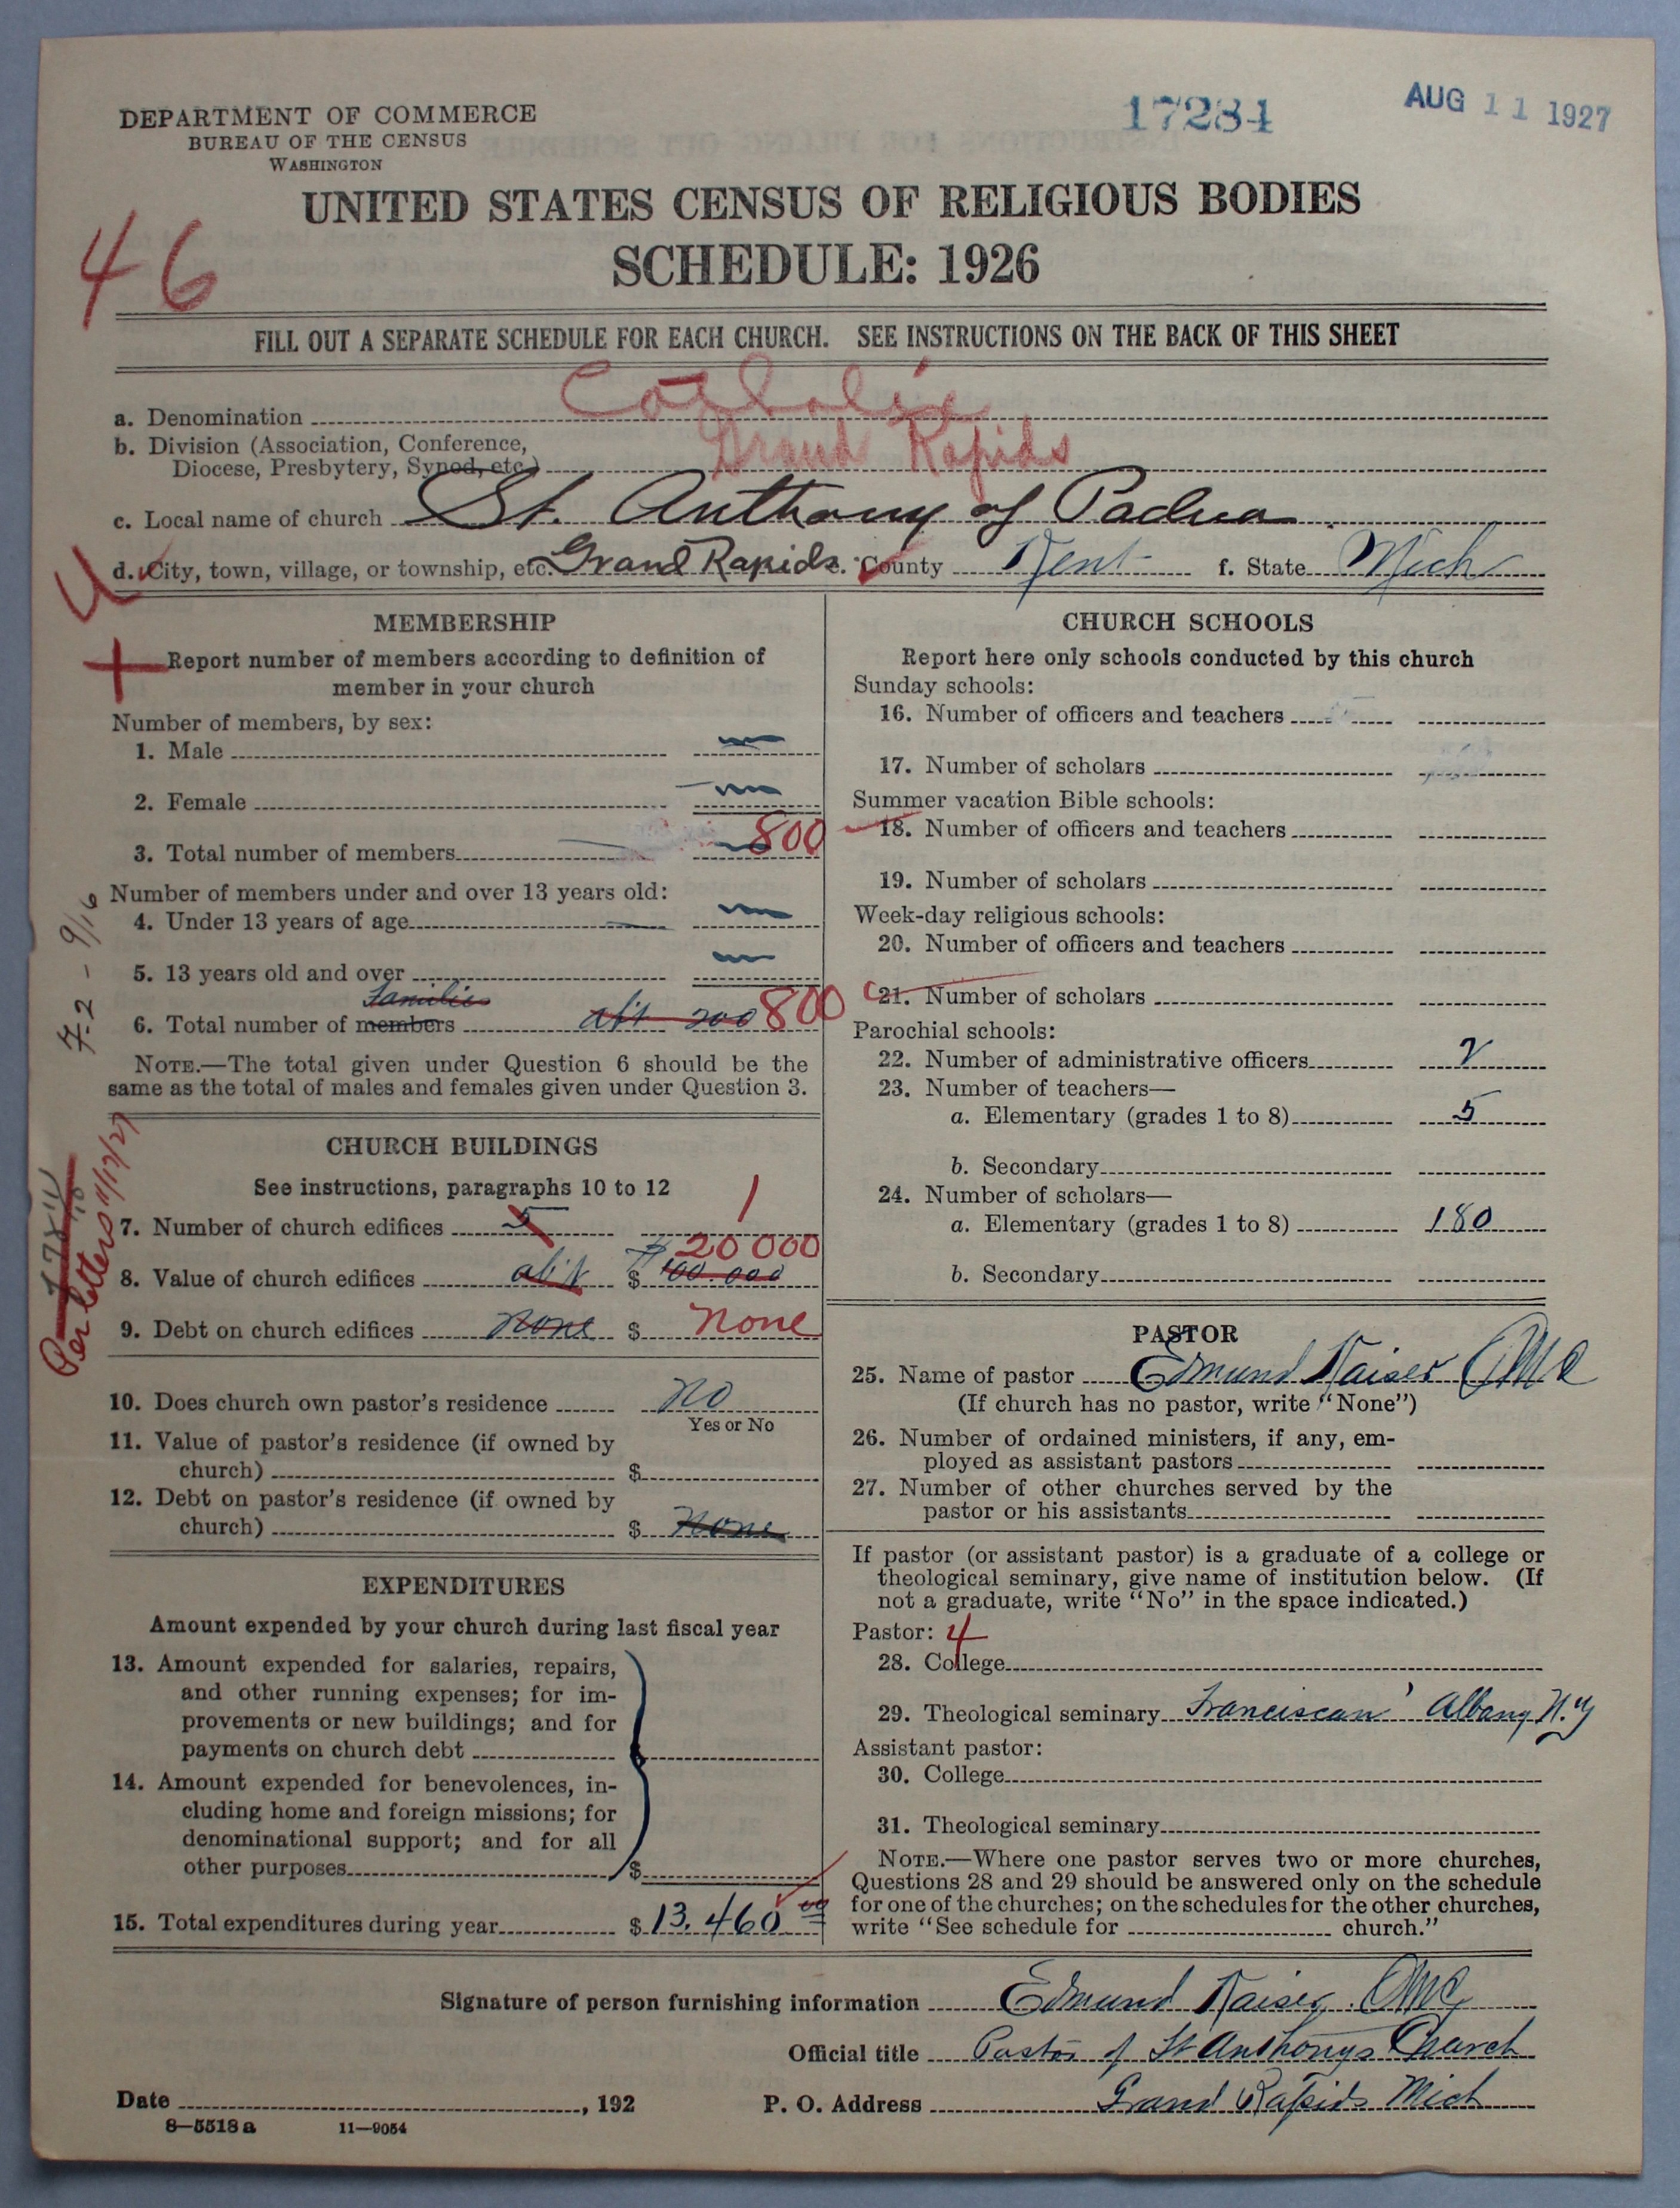 DEPARTMENT OF COMMERCE
BUREAU OF THE CENSUS
WASHINGTON
17284
AUG 11 1927
UNITED STATES CENSUS OF RELIGIOUS BODIES
SCHEDULE: 1926
46
FILL OUT A SEPARATE SCHEDULE FOR EACH CHURCH. SEE INSTRUCTIONS ON THE BACK OF THIS SHEET
a. Denomination Catholic
b. Division (Association, Conference,
Diocese, Presbytery, Synod, etc.) Grand Rapids
c. Local name of church St. Anthony of Padua
d. City, town, village, or township, etc. Grand Rapids. County Kent f. State Mich
MEMBERSHIP
Report number of members according to definition of
member in your church
Number of members, by sex:
1. Male
2. Female
3. Total number of members 800
Number of members under and over 13 years old:
4. Under 13 years of age
5. 13 years old and over
Families
6. Total number of members abt 200 800
NOTE.—The total given under Question 6 should be the
same as the total of males and females given under Question 3.
7-2 - 9/16
Per letters 11/12/27
CHURCH BUILDINGS
See instructions, paragraphs 10 to 12
7. Number of church edifices 5 1
8. Value of church edifices abt $ 100.000 20 000
9. Debt on church edifices None $ None
10. Does church own pastor's residence No
Yes or No
11. Value of pastor's residence (if owned by
church) $
12. Debt on pastor's residence (if owned by
church) $ None
EXPENDITURES
Amount expended by your church during last fiscal year
13. Amount expended for salaries, repairs,
and other running expenses; for im-
provements or new buildings; and for
payments on church debt
14. Amount expended for benevolences, in-
cluding home and foreign missions; for
denominational support; and for all
other purposes $
15. Total expenditures during year $ 13.460 00
CHURCH SCHOOLS
Report here only schools conducted by this church
Sunday schools:
16. Number of officers and teachers
17. Number of scholars
Summer vacation Bible schools:
18. Number of officers and teachers
19. Number of scholars
Week-day religious schools:
20. Number of officers and teachers
21. Number of scholars
Parochial schools:
22. Number of administrative officers 2
23. Number of teachers—
a. Elementary (grades 1 to 8) 5
b. Secondary
24. Number of scholars—
a. Elementary (grades 1 to 8) 180
b. Secondary
PASTOR
25. Name of pastor Edmund Kaiser OMC
(If church has no pastor, write "None")
26. Number of ordained ministers, if any, em-
ployed as assistant pastors
27. Number of other churches served by the
pastor or his assistants
If pastor (or assistant pastor) is a graduate of a college or
theological seminary, give name of institution below. (If
not a graduate, write "No" in the space indicated.)
Pastor: 4
28. College
29. Theological seminary Franciscan Albany N.Y
Assistant pastor:
30. College
31. Theological seminary
NOTE.—Where one pastor serves two or more churches,
Questions 28 and 29 should be answered only on the schedule
for one of the churches; on the schedules for the other churches,
write "See schedule for church."
Signature of person furnishing information Edmund Kaiser. OMC
Official title Pastor of St Anthonys Church
Date , 192
P. O. Address Grand Rapids Mich
8—5518 a 11—9054